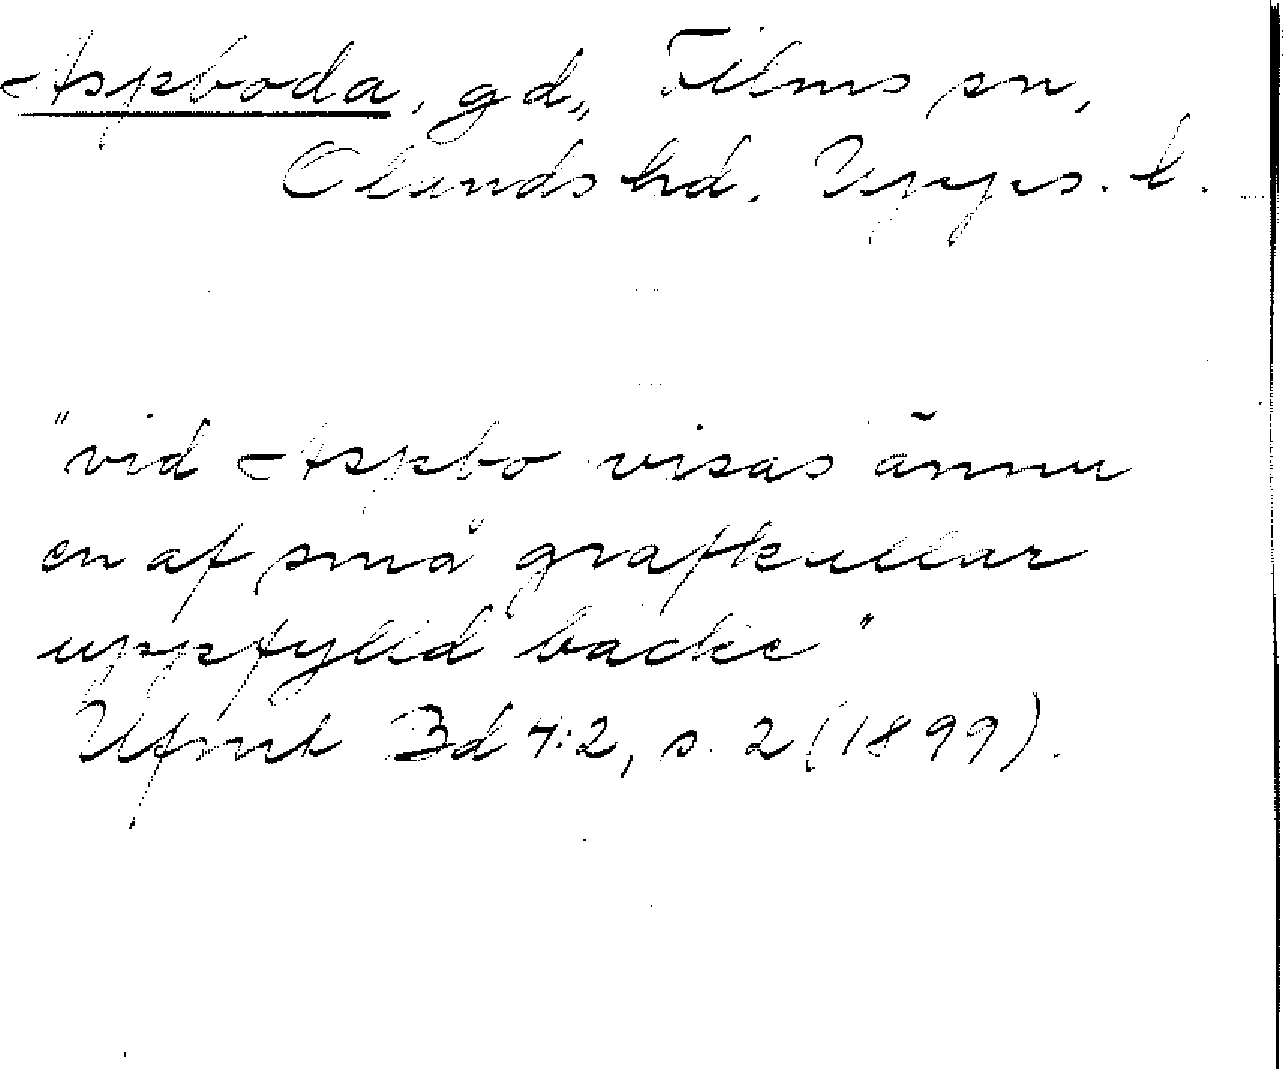 Aspboda, gd., Films sn,
Olands hd. Upps. l.
"vid Aspbo visas ännu
en af små grafkullar
uppfylld backe"
Ufmt Bd 4:2, s. 2 (1899).